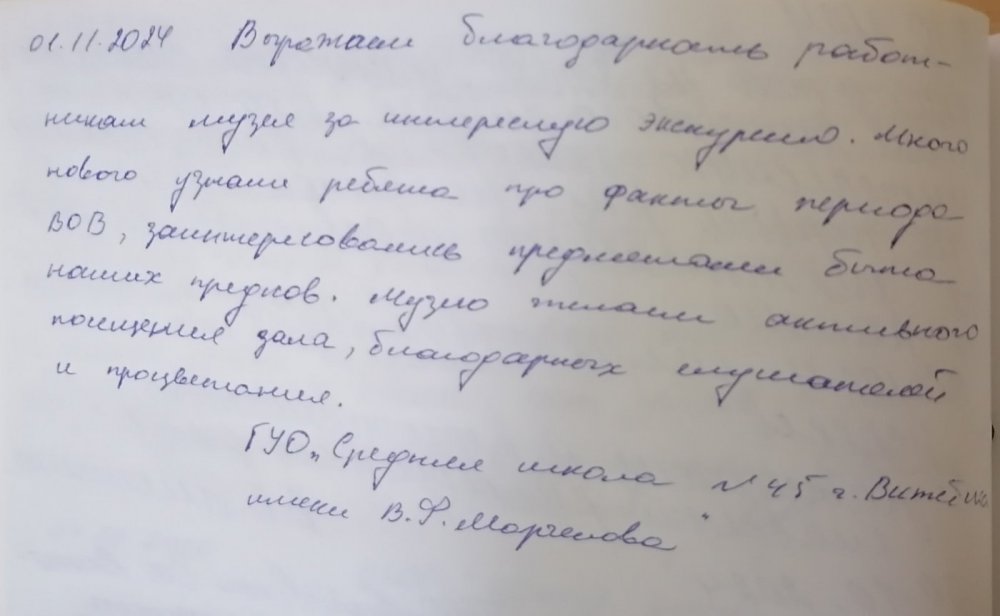 01.11.2024 Выражаем благодарность работ-
никам музея за интересную экскурсию. Много
нового узнали ребята про факты периода
ВОВ, заинтересовались предметами быта
наших предков. Музею желаем активного
посещения зала, благодарных слушателей
и процветания.
ГУО „Средняя школа №45 г. Витебска
имени В.Ф. Маргелова"